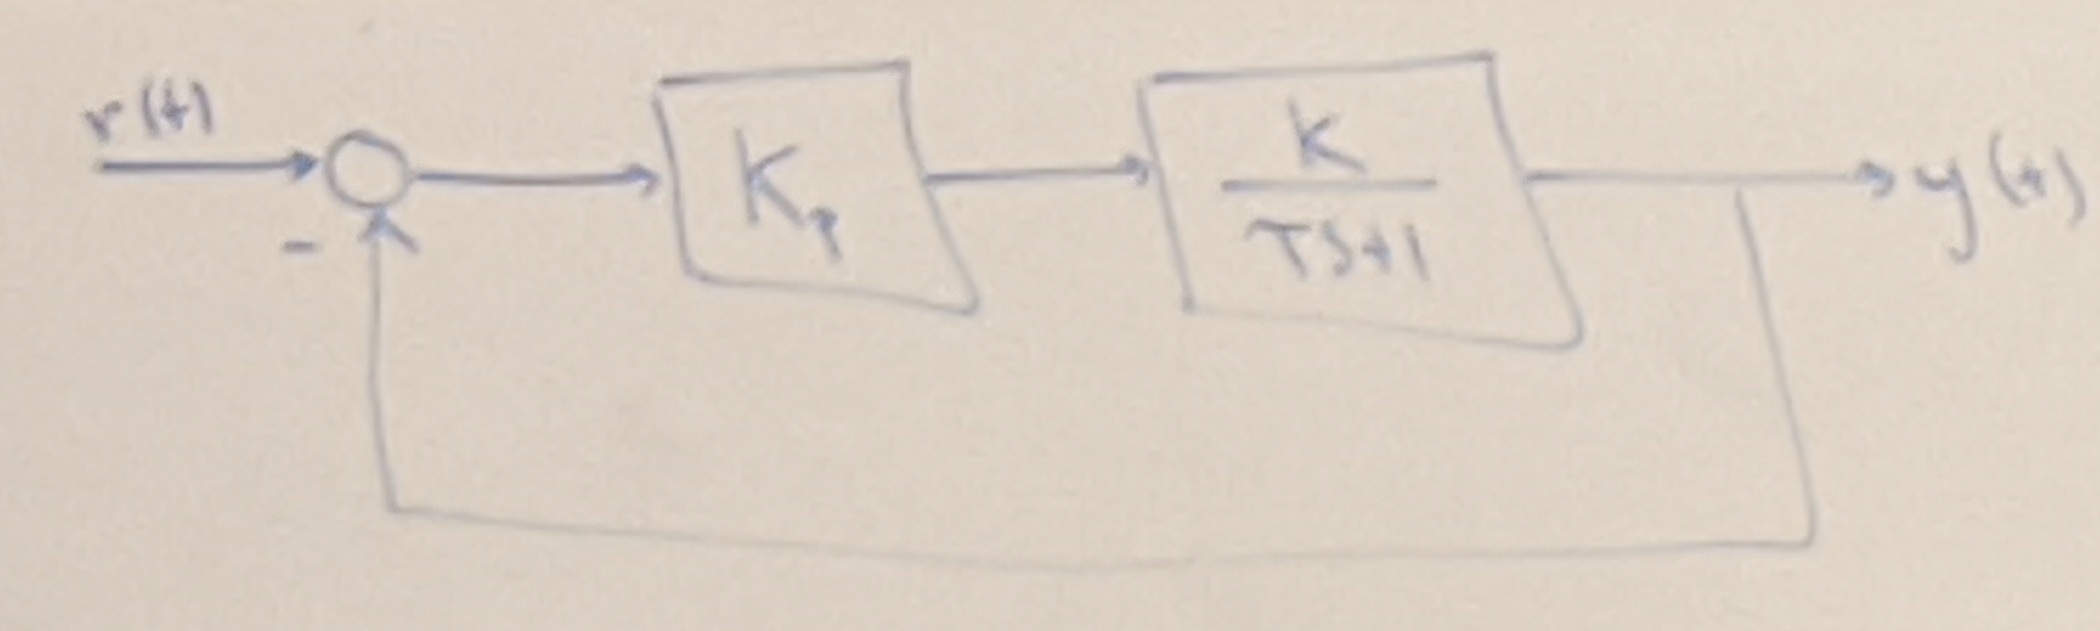 r(t)
K_p
K
TS+1
y(t)
-